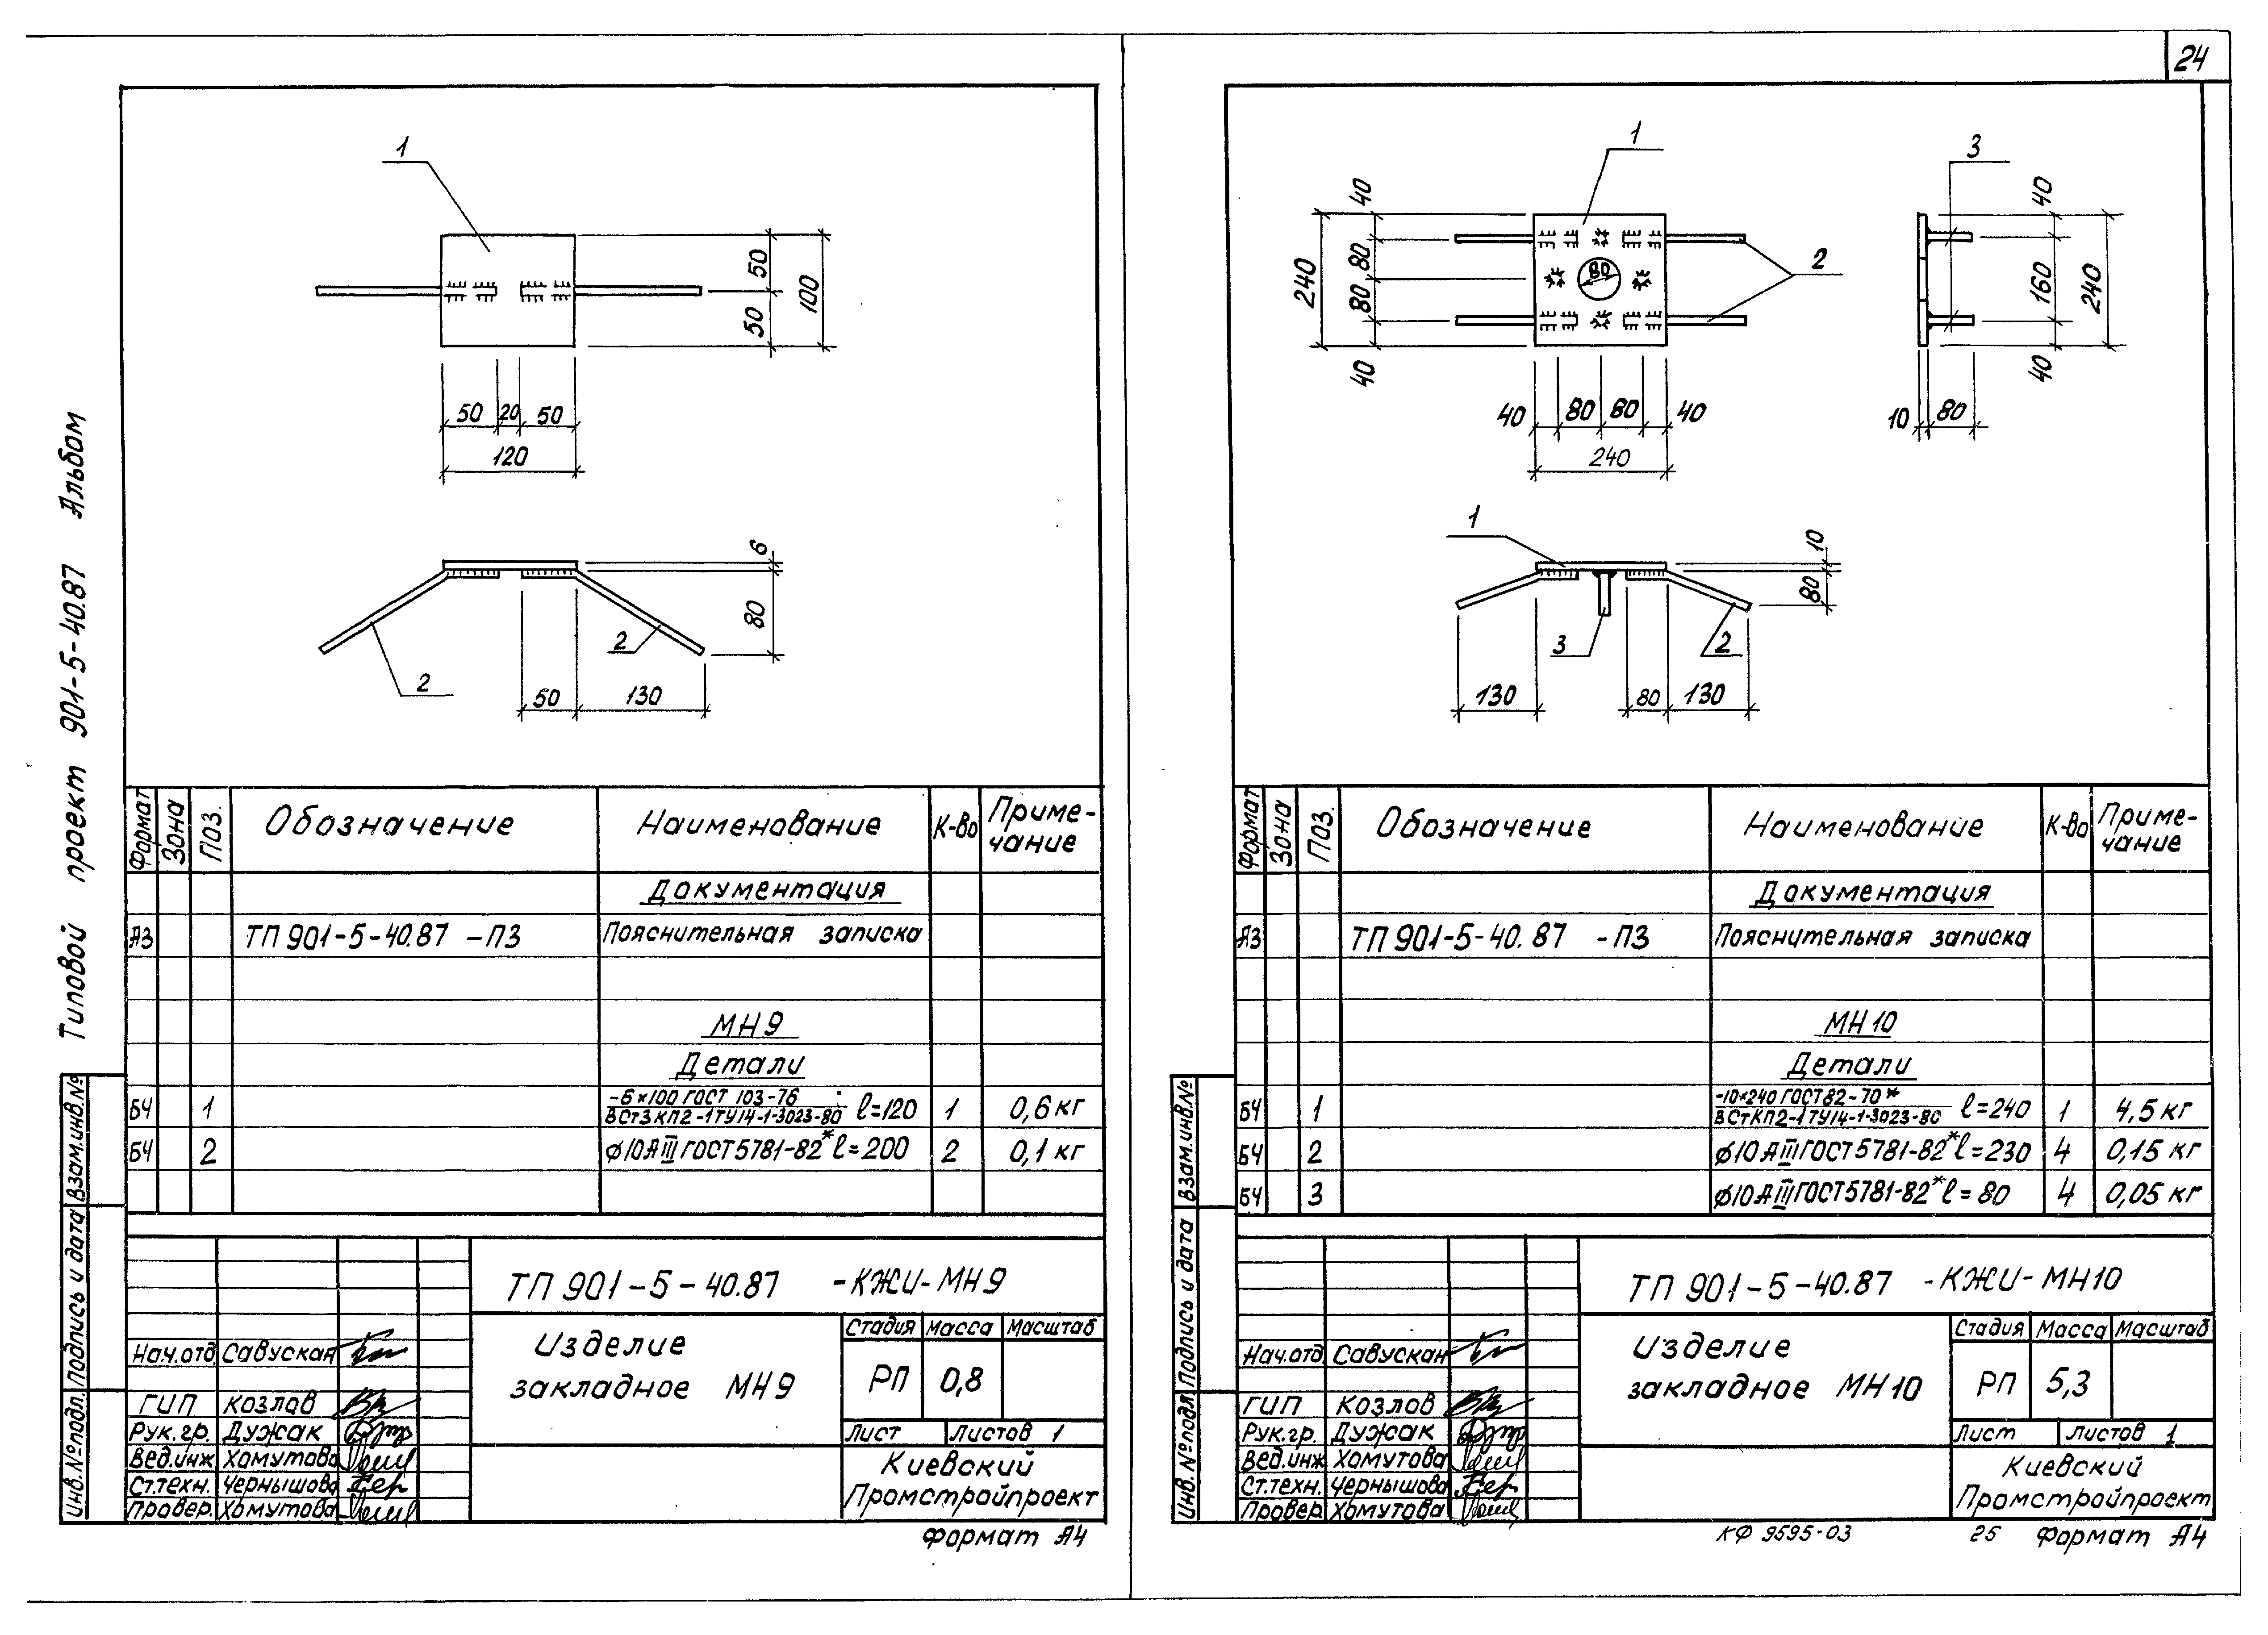 24
Типовой проект 901-5-40.87 Альбом
1
50
50
100
50
20
50
120
6
80
2
2
50
130
Формат
Зона
Поз.
Обозначение
Наименование
К-во
Приме-
чание
Документация
А3
ТП 901-5-40.87 -ПЗ
Пояснительная записка
МН 9
Детали
БЧ 1
-6×100 ГОСТ 103-76
ВСт3КП2-1ТУ14-1-3023-80
ℓ=120
1
0,6 кг
БЧ 2
ϕ10АIII ГОСТ 5781-82* ℓ=200
2
0,1 кг
ТП 901-5-40.87 -КЖИ-МН9
Изделие
закладное МН9
Стадия Масса Масштаб
РП 0,8
Лист Листов 1
Киевский
Промстройпроект
Нач.отд Савускан
ГИП Козлов
Рук.гр. Дужак
Вед.инж Хомутова
Ст.техн. Чернышова
Провер. Хомутова
Инв.№подл. Подпись и дата Взам.инв.№
Формат А4
1
40
80
80
40
240
80
2
3
40
160
40
240
40 80 80 40
240
10 80
1
10
80
3
2
130
80
130
Формат
Зона
Поз.
Обозначение
Наименование
К-во
Приме-
чание
Документация
А3
ТП 901-5-40.87 -ПЗ
Пояснительная записка
МН 10
Детали
БЧ 1
-10×240 ГОСТ 82-70*
ВСтКП2-1ТУ14-1-3023-80
ℓ=240
1
4,5 кг
БЧ 2
ϕ10АIII ГОСТ 5781-82* ℓ=230
4
0,15 кг
БЧ 3
ϕ10АIII ГОСТ 5781-82* ℓ=80
4
0,05 кг
ТП 901-5-40.87 -КЖИ-МН10
Изделие
закладное МН10
Стадия Масса Масштаб
РП 5,3
Лист Листов 1
Киевский
Промстройпроект
Нач.отд Савускан
ГИП Козлов
Рук.гр. Дужак
Вед.инж Хомутова
Ст.техн. Чернышова
Провер Хомутова
Инв.№подл Подпись и дата Взам.инв.№
КФ 9595-03 25 Формат А4